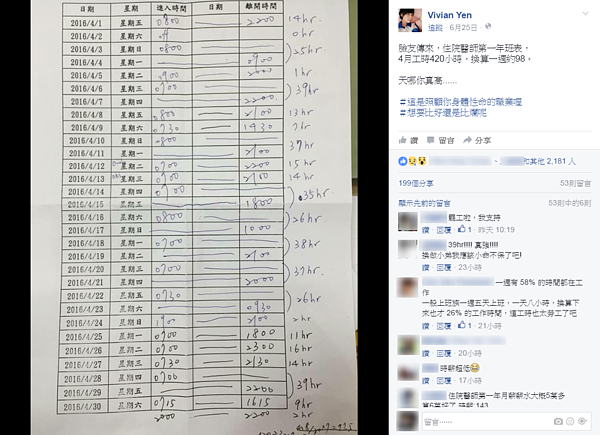 日期 星期 進入時間 日期 離開時間
2016/4/1 星期五 0800 2200 14hr
2016/4/2 星期六 off 0hr
2016/4/3 星期日 0800
25hr
2016/4/4 星期一 0900
2016/4/5 星期二 0900 2000 1hr
2016/4/6 星期三 0700
39hr
2016/4/7 星期四 2200
2016/4/8 星期五 0800 2100 13hr
2016/4/9 星期六 0730 1430 7hr
2016/4/10 星期日 0800
37hr
2016/4/11 星期一 2100
2016/4/12 星期二 0700 2200 15hr
2016/4/13 星期三 0700 2100 14hr
2016/4/14 星期四 0700
35hr
2016/4/15 星期五 1800
2016/4/16 星期六 0800
26hr
2016/4/17 星期日 1000
2016/4/18 星期一 0700
38hr
2016/4/19 星期二 2100
2016/4/20 星期三 0700
37hr
2016/4/21 星期四 2000
2016/4/22 星期五 0730
26hr
2016/4/23 星期六 0930
2016/4/24 星期日 1900 2100 2hr
2016/4/25 星期一 0700 1800 11hr
2016/4/26 星期二 0700 2300 16hr
2016/4/27 星期三 0730 2130 14hr
2016/4/28 星期四 0700
39hr
2016/4/29 星期五 2200
2016/4/30 星期六 0715 1615 9hr
2000 2200 2hr
Vivian Yen
追蹤 · 6月25日
臉友傳來，住院醫師第一年班表，
4月工時420小時，換算一週約98。
天哪你真高......
#這是照顧你身體性命的職業喔
#想要比好還是比爛呢
讚 留言 分享
和其他 2,181 人
199個分享 53則留言
顯示先前的留言 53則中的6則
罷工啦，我支持
讚 · 回覆 · 1 · 昨天 10:19
39hr!!!! 真強!!!!
換做小弟我應該小命不保了吧!
讚 · 回覆 · 23小時
一週有 58% 的時間都在工
作
一般上班族一週五天上班，一天八小時，換算下
來也才 26% 的工作時間，這工時也太勞工了吧
讚 · 回覆 · 1 · 21小時
讚 · 回覆 · 20小時
時薪超低
讚 · 回覆 · 17小時
住院醫師第一年月薪薪水大概5萬多
留言......